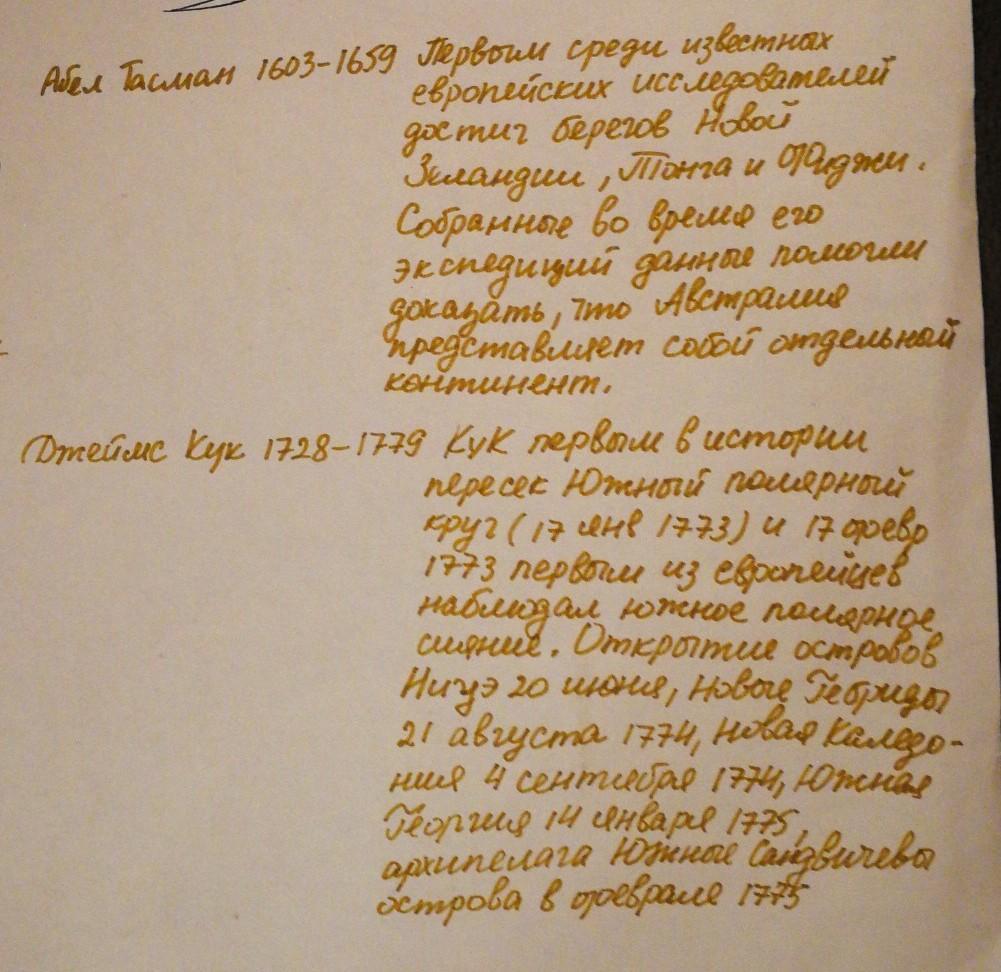 Абел Тасман 1603-1659 Первым среди известных
европейских исследователей
достиг берегов Новой
Зеландии, Тонга и Фиджи.
Собранные во время его
экспедиций данные помогли
доказать, что Австралия
представляет собой отдельный
континент.
Джеймс Кук 1728-1779 Кук первым в истории
пересек Южный полярный
круг (17 янв 1773) и 17 февр
1773 первым из европейцев
наблюдал южное полярное
сияние. Открытие островов
Ниуэ 20 июня, Новые Гебриды
21 августа 1774, Новая Каледо-
ния 4 сентября 1774, Южная
Георгия 14 января 1775,
архипелага Южные Сандвичевы
острова в феврале 1775